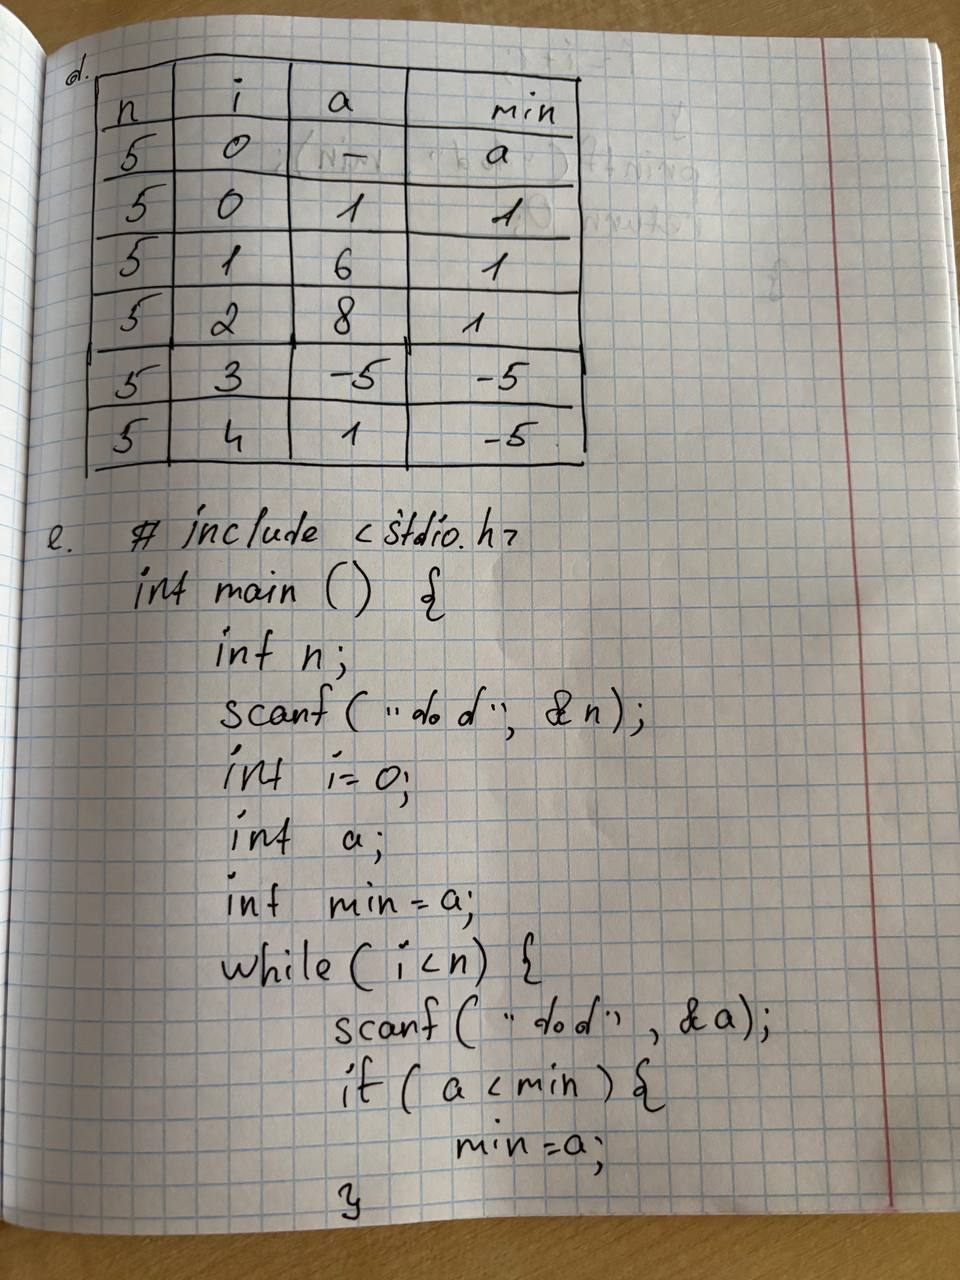 d.
n i a min
5 0 – a
5 0 1 1
5 1 6 1
5 2 8 1
5 3 -5 -5
5 4 1 -5
e. # include <stdio.h>
int main () {
int n;
scanf ( "%d", &n);
int i= 0;
int a;
int min = a;
while ( i<n) {
scanf ( "%d", &a);
if ( a < min ) {
min = a;
}